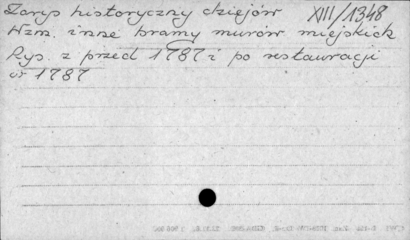 Zarys historyczny dziejów XIII/1348
Wzm. inne bramy murów miejskich
Rys. z przed 1787 i po restauracji
w 1787